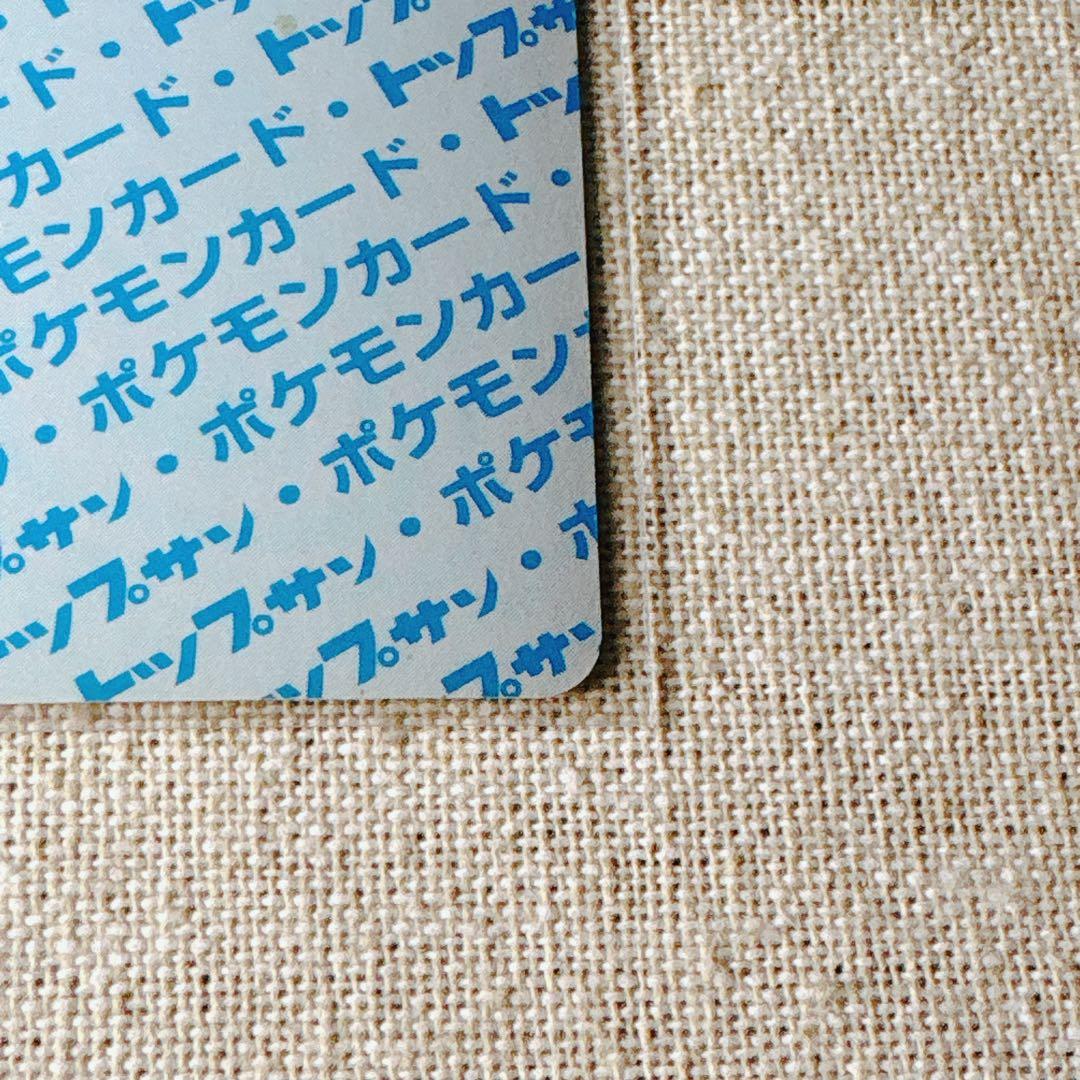 ド・トッ
カード・トップ
モンカード・トップサ
ポケモンカード・トッ
・ポケモンカード・
プサン・ポケモンカー
トップサン・ポケモンカ
トップサン・ポケモ
ップサン・ポ
プサ